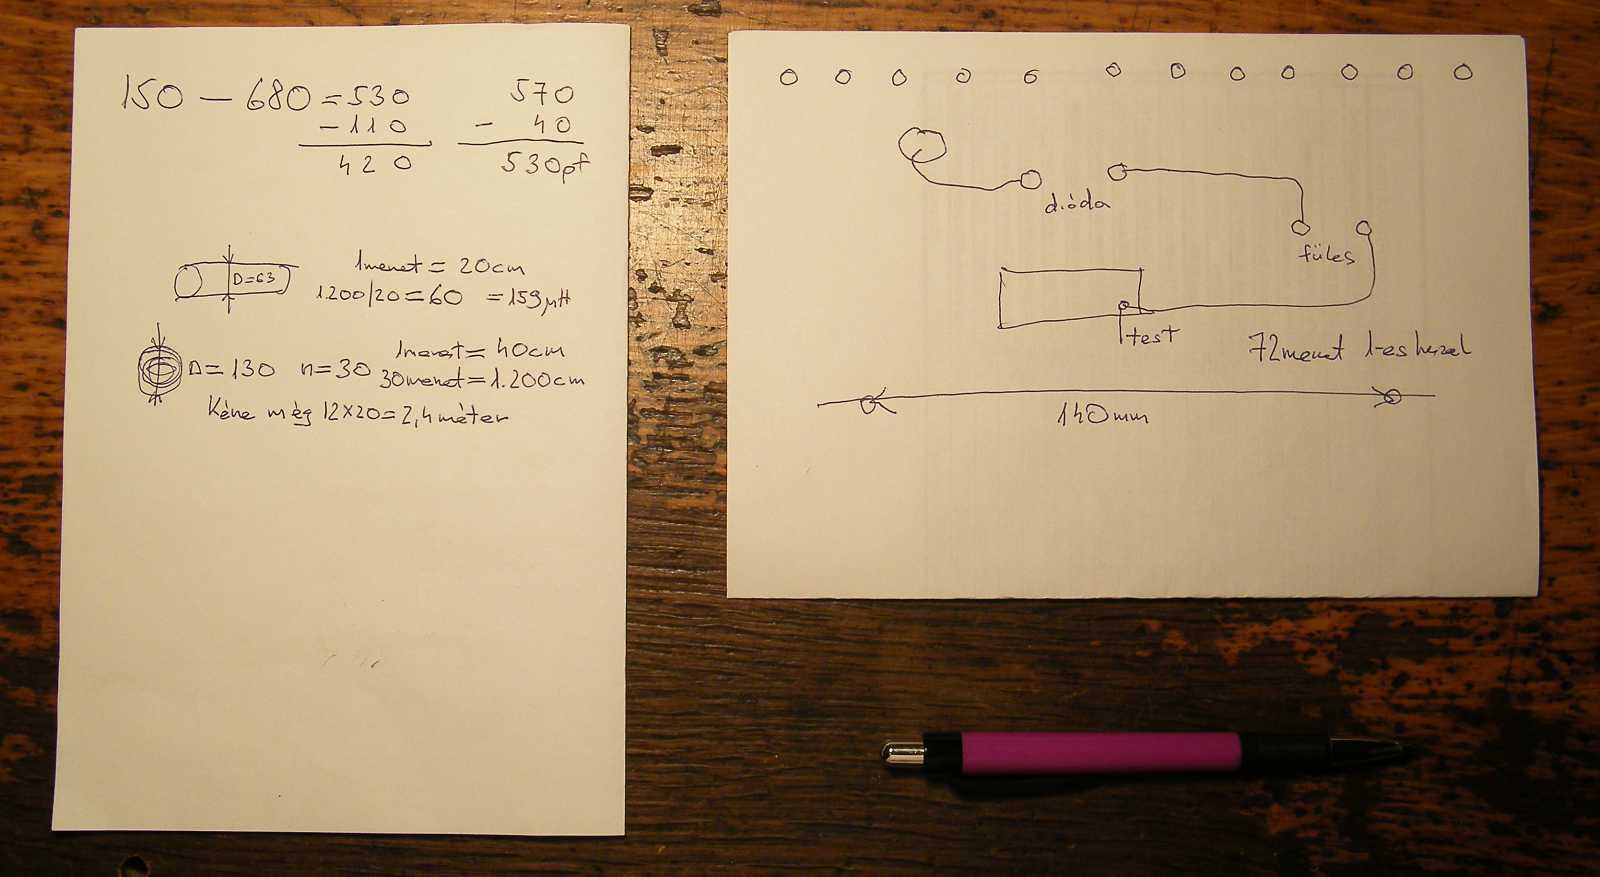 150 – 680 = 530
– 110
420
570
– 40
530pf
D=63
1menet = 20cm
1200/20=60 =159µH
D=130 n=30
1menet= 40cm
30menet=1.200cm
Kéne még 12x20=2,4méter
dióda
füles
test
72menet 1-es huzal
140mm